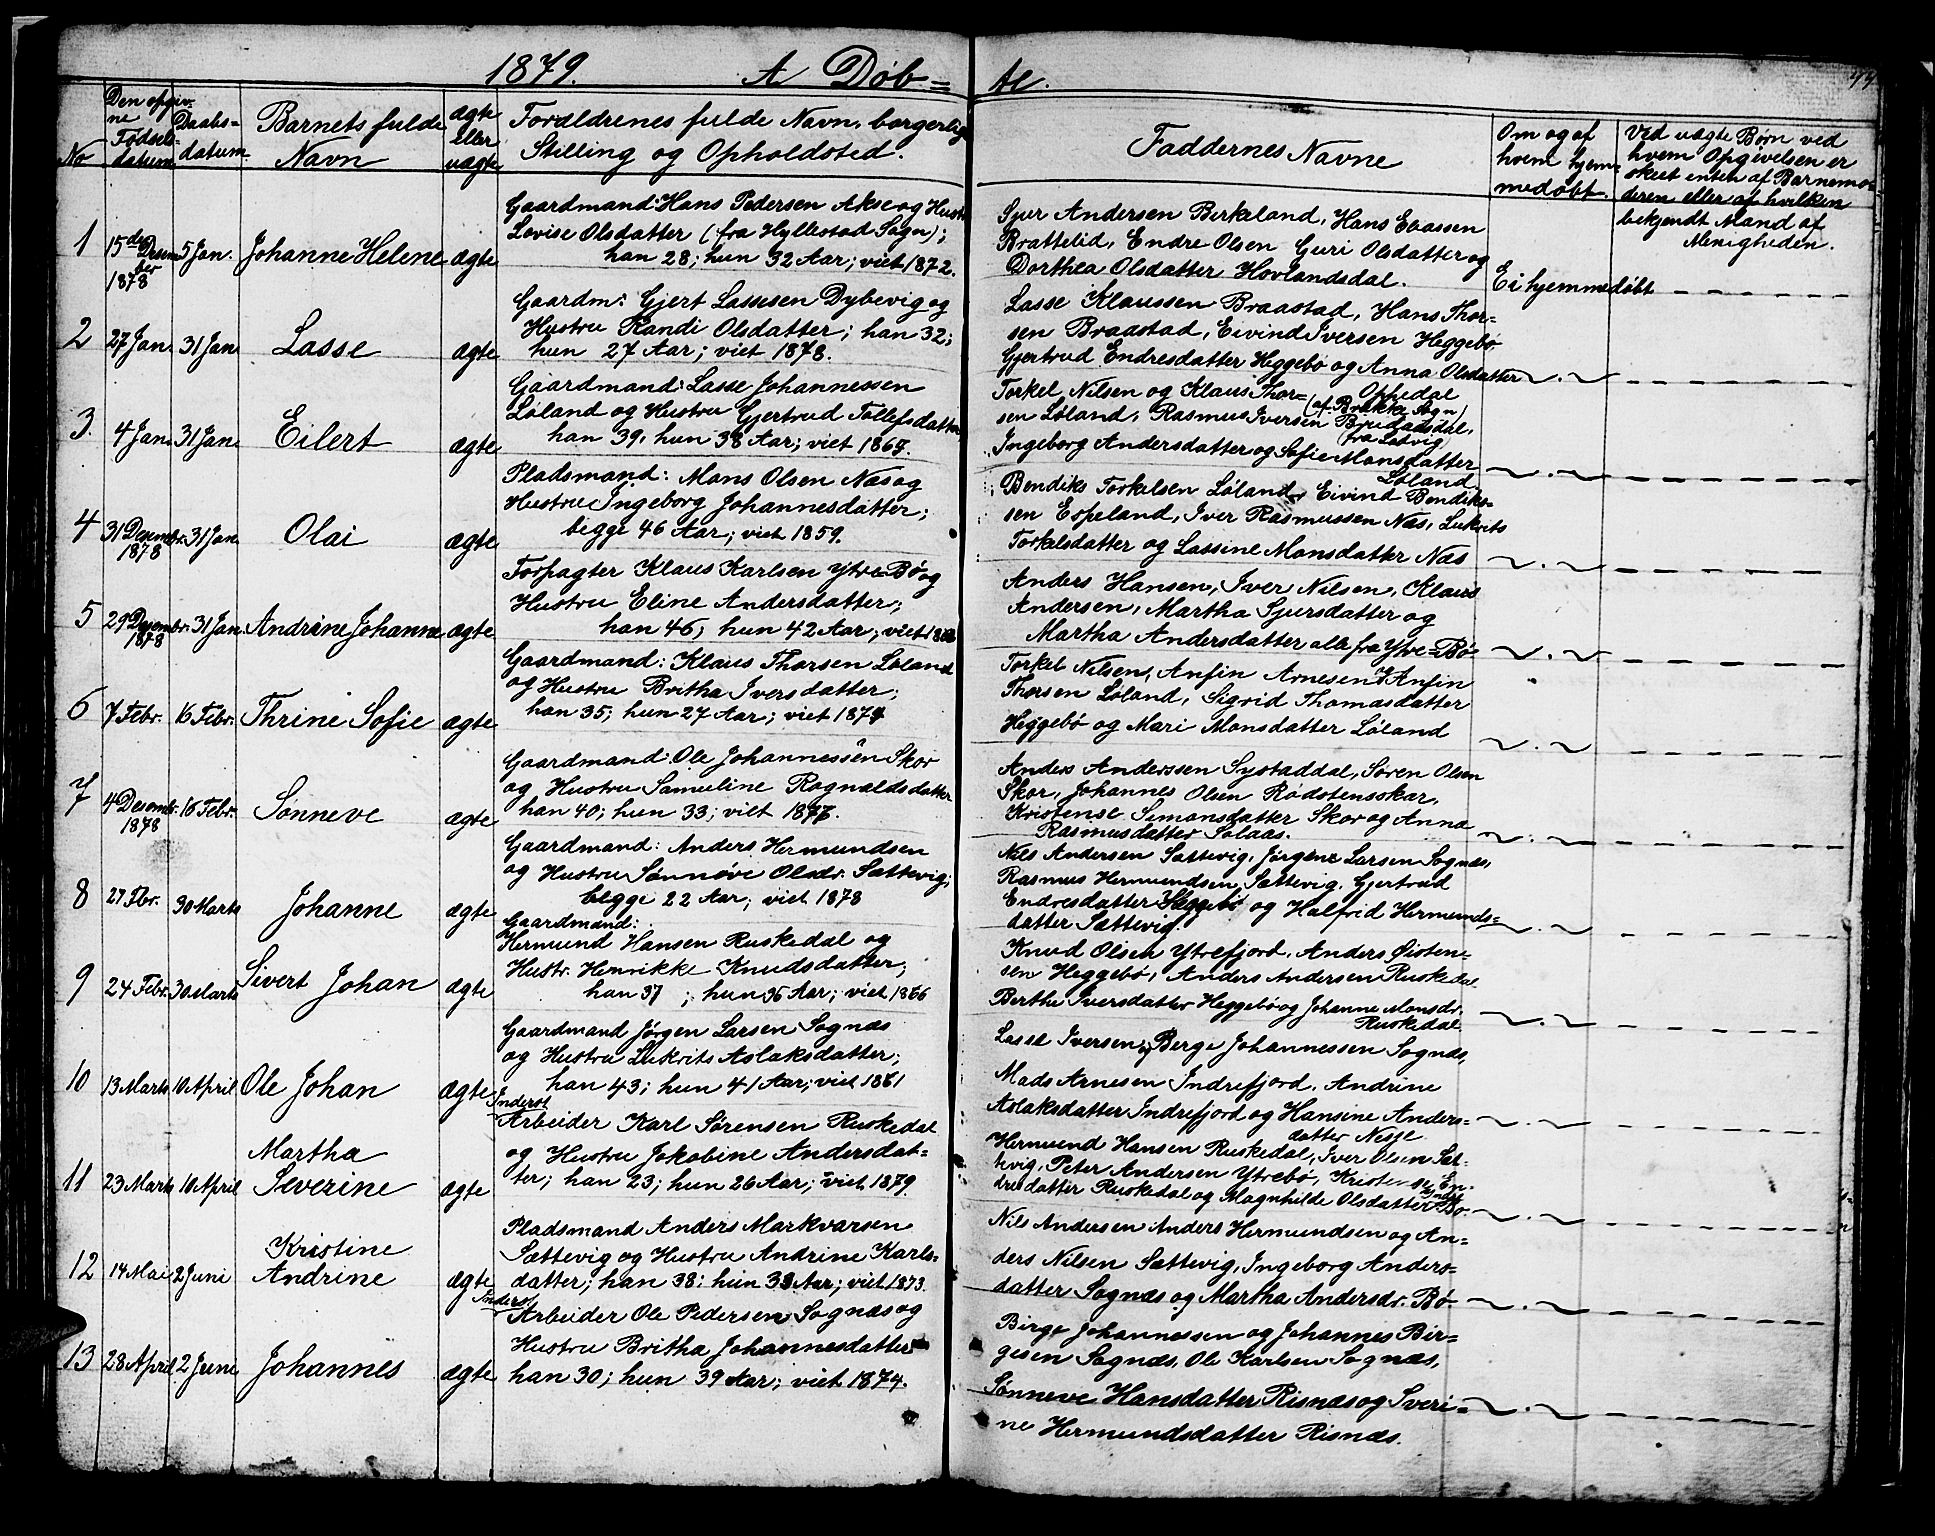 1879. A Døb= te.
No
Den opgivne Fødselsdatum
Daabsdatum
Barnets fulde Navn
ægte eller uægte
Forældrenes fulde Navn, borgerlig
Stilling og Opholdsted.
Faddernes Navne
Om og af hvem hjemmedøbt.
Ved uægte Børn ved
hvem Opgivelsen er
skeet enten af Barnemo-
deren eller af hvilken
bekjendt Mand af
Menigheden.
1 15de Desember 1878 5 Jan. Johanne Helene ægte
Gaardmand: Hans Pedersen Akse og Hustr.
Lovise Olsdatter (fra Hyllestad Sogn);
han 28; hun 32 Aar; viet 1872.
Sjur Andersen Birkeland, Hans Eliassen
Brattelid, Endre Olsen Guri Olsdatter og
Dorthea Olsdatter Hovlandsdal.
Ei hjemmedøbt
2 27 Jan. 31 Jan. Lasse ægte
Gaardm: Gjert Lassesen Dybevig og
Hustru Randi Olsdatter; han 32;
hun 27 Aar; viet 1878.
Lasse Klaussen Braastad, Hans Thor=
sen Braastad, Eivind Iversen Heggebø,
Gjertrud Endresdatter Heggebø og Anna Olsdatter
Ophedal
3. 4 Jan. 31 Jan. Eilert ægte
Gaardmand: Lasse Johannessen
Løland og Hustru Gjertrud Tollefsdatter
han 39, hun 38 Aar; viet 1867.
Torkel Nilsen og Klaus Thor=
(af Brække Sogn)
sen Løland, Rasmus Iversen Bredadsdal,
fra Ladvig
Ingeborg Andersdatter og Sofie Monsdatter
Løland
4 31 Desembr. 1878 31 Jan. Olai ægte
Pladsmand: Mons Olsen Næs og
Hustru Ingeborg Johannesdatter;
begge 46 Aar; viet 1859.
Bendiks Torkelsen Løland, Eivind Bendiks-
sen Espeland, Iver Rasmussen Næs, Lukrits
Torkelsdatter og Lassine Monsdatter Næs
5 29 Desembr. 1878 31 Jan. Andrine Johanne ægte
Forpagter Klaus Karlsen Ytre=Bø og
Hustru Eline Andersdatter;
han 46; hun 42 Aar; viet
Anders Hansen, Iver Nilsen, Klaus
Andersen, Martha Sjursdatter og
Martha Andersdatter alle fra Ytre=Bø
6 7 Febr. 16 Febr. Thrine Sofie ægte
Gaardmand: Klaus Thorsen Løland
og Hustru Britha Iversdatter;
han 35; hun 27 Aar; viet 1874
Torkel Nilsen, Anfin Arnesen, Anfin
Thorsen Løland, Sigrid Thomasdatter
Heggebø og Mari Monsdatter Løland
7 4 Desembr. 1878 16 Febr. Sønneve ægte
Gaardmand: Ole Johannessen Skor
og Hustru Samuline Ragnaldsdatter
han 40; hun 33; viet 1877.
Anders Anderssen Systaddal, Søren Olsen
Skor, Johannes Olsen Rødstensskar,
Kristense Simonsdatter Skor og Anna
Rasmusdatter Solaas.
8 27 Fbr. 30 Marts Johanne ægte
Gaardmand: Anders Hermundsen
og Hustru Sønnøve Olsdr. Sættevig,
begge 22 Aar; viet 1878
Nils Andersen Sættevig, Jørgen Larsen Sognæs,
Rasmus Hermundsen Sættevig, Gjertrud
Endresdatter Heggebø og Halfrid Hermunds=
datter Sættevig.
9 24 Febr. 30 Marts Sivert Johan ægte
Gaardmand:
Hermund Hansen Ruskedal og
Hustr. Henrikke Knudsdatter;
han 37; hun 36 Aar; viet 1866
Knud Olsen Ytrefjord, Anders Øisten=
sen Heggebø, Anders Andersen Ruskedal
Berthe Iversdatter Heggebø og Johanne Monsdr.
Ruskedal
10 13 Marts 10 April Ole Johan ægte
Gaardmand Jørgen Larsen Sognæs
og Hustru Lukrits Aslaksdatter;
han 43; hun 41 Aar; viet 1861
Lasse Iversen, Berge Johannessen Sognæs,
Mads Arnesen Indrefjord, Andrine
Aslaksdatter Indrefjord og Hansine Anders=
datter Nesje
11 23 Marts 10 April Martha Severine ægte
Inderst
Arbeider Karl Sørensen Ruskedal
og Hustru Jakobine Andersdat=
ter; han 23; hun 26 Aar; viet 1879.
Hermund Hansen Ruskedal, Iver Olsen Sæt-
tevig, Peter Andersen Ytrebø, Kristense En-
dresdatter Ruskedal og Magnhilde Olsdatter Bø.
12 14 Mai 2 Juni Kristine Andrine ægte
Pladsmand Anders Markvarsen
Sættevig og Hustru Andrine Karls=
datter; han 38; hun 33 Aar; viet 1873.
Nils Andersen Anders Hermundsen og An=
ders Nilsen Sættevig, Ingeborg Anders-
datter Sognæs og Martha Andersdr. Bø
13 28 April 2 June Johannes ægte
Inderst
Arbeider Ole Pedersen Sognæs og
Hustru Britha Johannesdatter
han 30; hun 39 Aar; viet 1874.
Birge Johannessen og Johannes Bir=
gesen Sognæs, Ole Karlsen Sognæs,
Sønneve Hansdatter Risnæs og Sveri=
ne Hermundsdatter Risnæs.